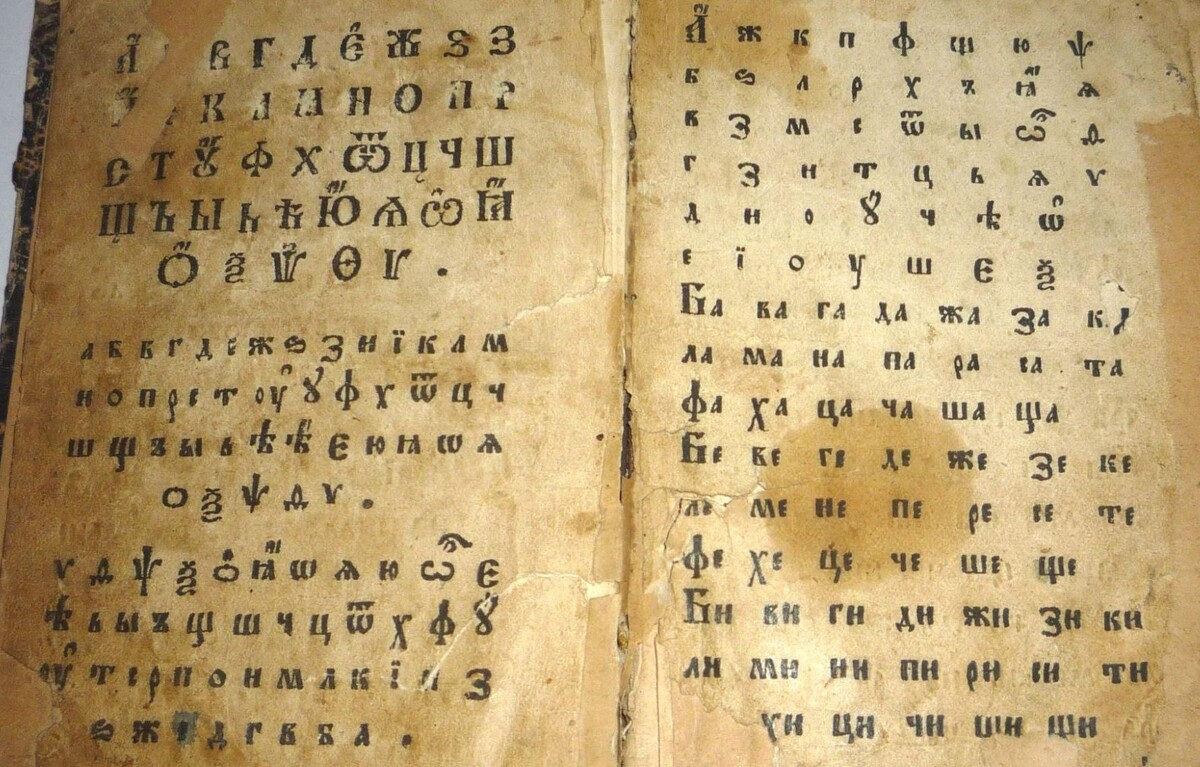 А҆̀ В Г Д Є҆ Ж Ѕ З
К Л М Н О П Р
С Т Ꙋ҆ Ф Х Ѿ Ц Ч Ш
Щ Ъ Ы Ь Ѣ Ю҆̀ Ѧ Ѽ Ꙗ҆̀
Ѻ҆̀ Ѯ Ѱ Ѳ Ѵ .
а б в г д е ж ѕ з и ї к л м
н о п р с т оу҆ ꙋ҆ ф х ѿ ц ч
ш щ ъ ы ь ѣ ѣ҆ є ю ꙗ ѡ ѧ
ѻ ѯ ѱ ѳ ѵ .
ѵ ѳ ѱ ѯ ѻ҆ ꙗ҆̀ ѡ ѧ ю ѽ є
ѣ ь ы ъ щ ш ч ц ѿ х ф ꙋ҆
оу҆ т с р п о н м л к ї и з
ѕ ж е д г в б а .
А҆̀ ж к п ф щ ю ѱ
б ѕ л р х ъ ꙗ҆̀ ѧ
в з м с ѿ ы ѽ ѳ
г з н т ц ь ѧ ѵ
д и о ꙋ҆ ч ѣ ѡ҆
е ї о у ш є ѯ
Ба ва га да жа за ка
ла ма на па ра са та
фа ха ца ча ша ща
Бе ве ге де же зе ке
ле ме не пе ре се те
фе хе це че ше ще
Би ви ги ди жи зи ки
ли ми ни пи ри си ти
хи ци чи ши щи